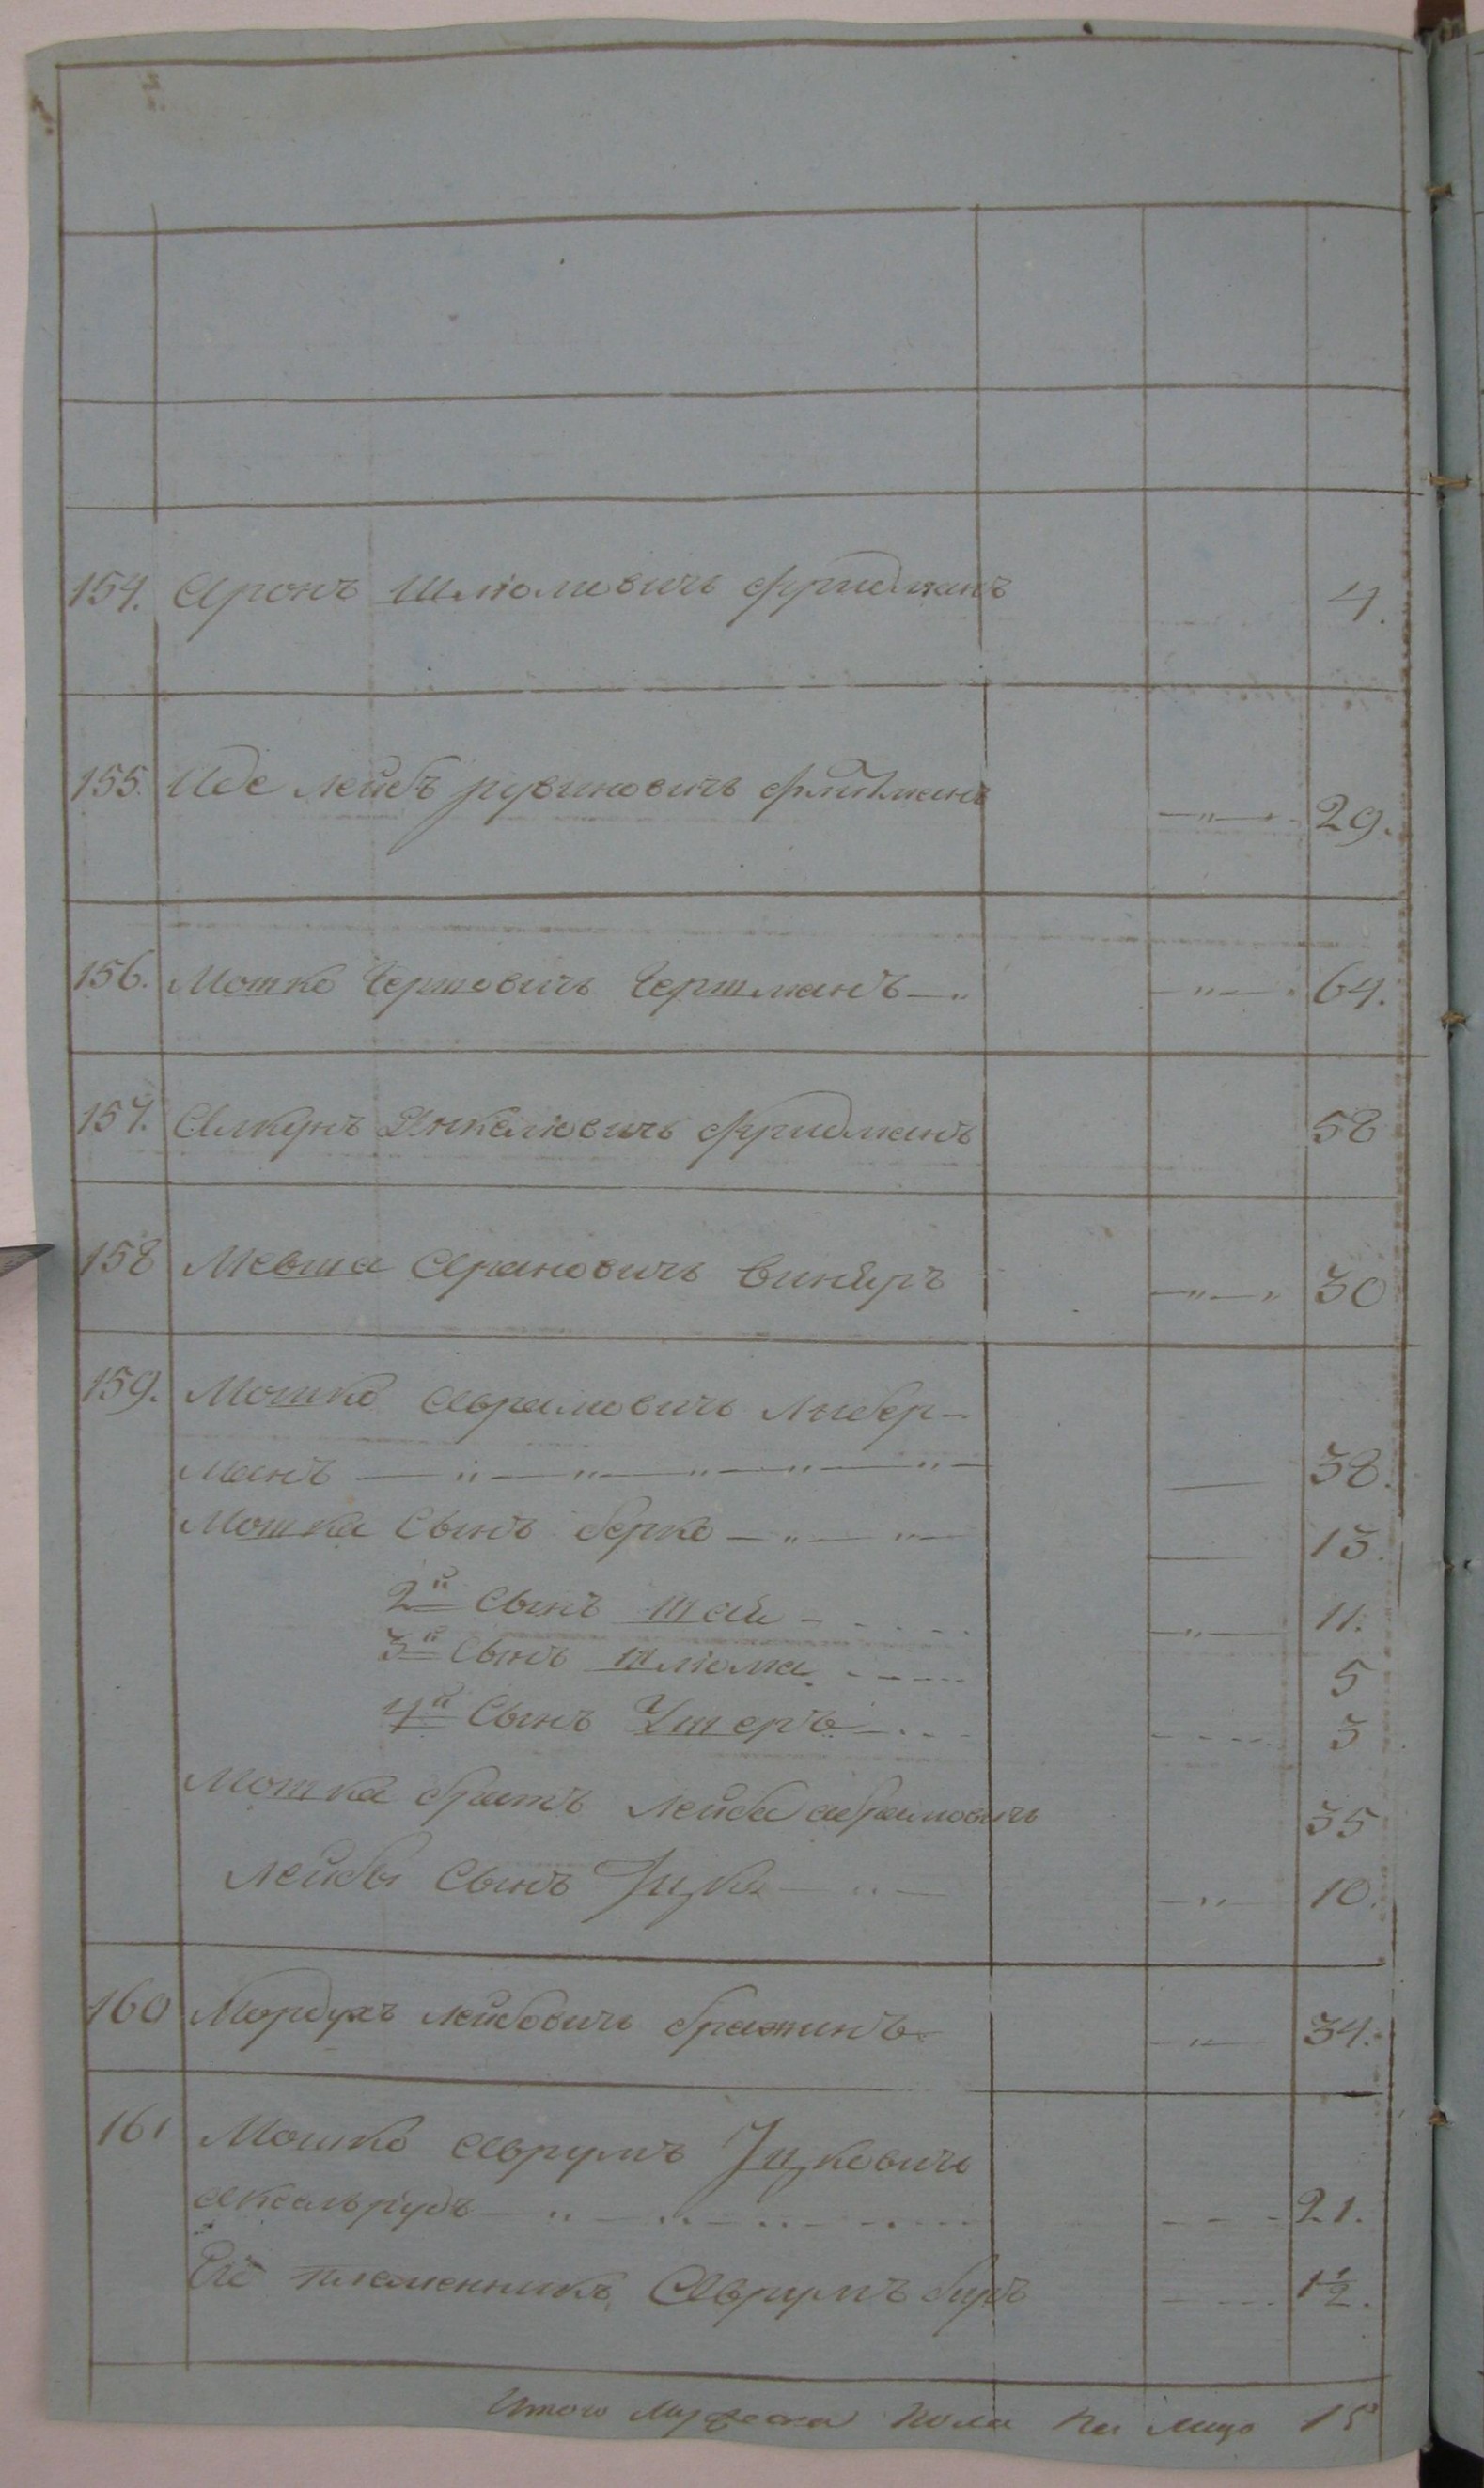 154. Аронъ Шлiомовичь Фридманъ 4.
155. Иде Лейбъ Рувиновичъ 29.
156. Мошко Гершовичъ Гершманъ 64.
157. Янкелiовичь Фридманъ 58
158 Мевша Ароновичъ Виняръ 30
159. Мошко Аврамовичъ Либер-
манъ 38.
Мошка Сынъ Берко 13.
2й Сынъ Шая 11.
3й Сынъ Шлiома 5
4й Сынъ Ушеръ 3
Мошка братъ Лейба Абрамовичъ 35
Лейбы Сынъ Ицко 10.
160 Мордухъ Лейбовичь Бражинъ 34.
161 Мошко Аврумъ Ицковичь
Аксельрудъ 21.
Его племенникъ Аврумъ 1 1/2.
Итого Мужеска пола на лицо 15